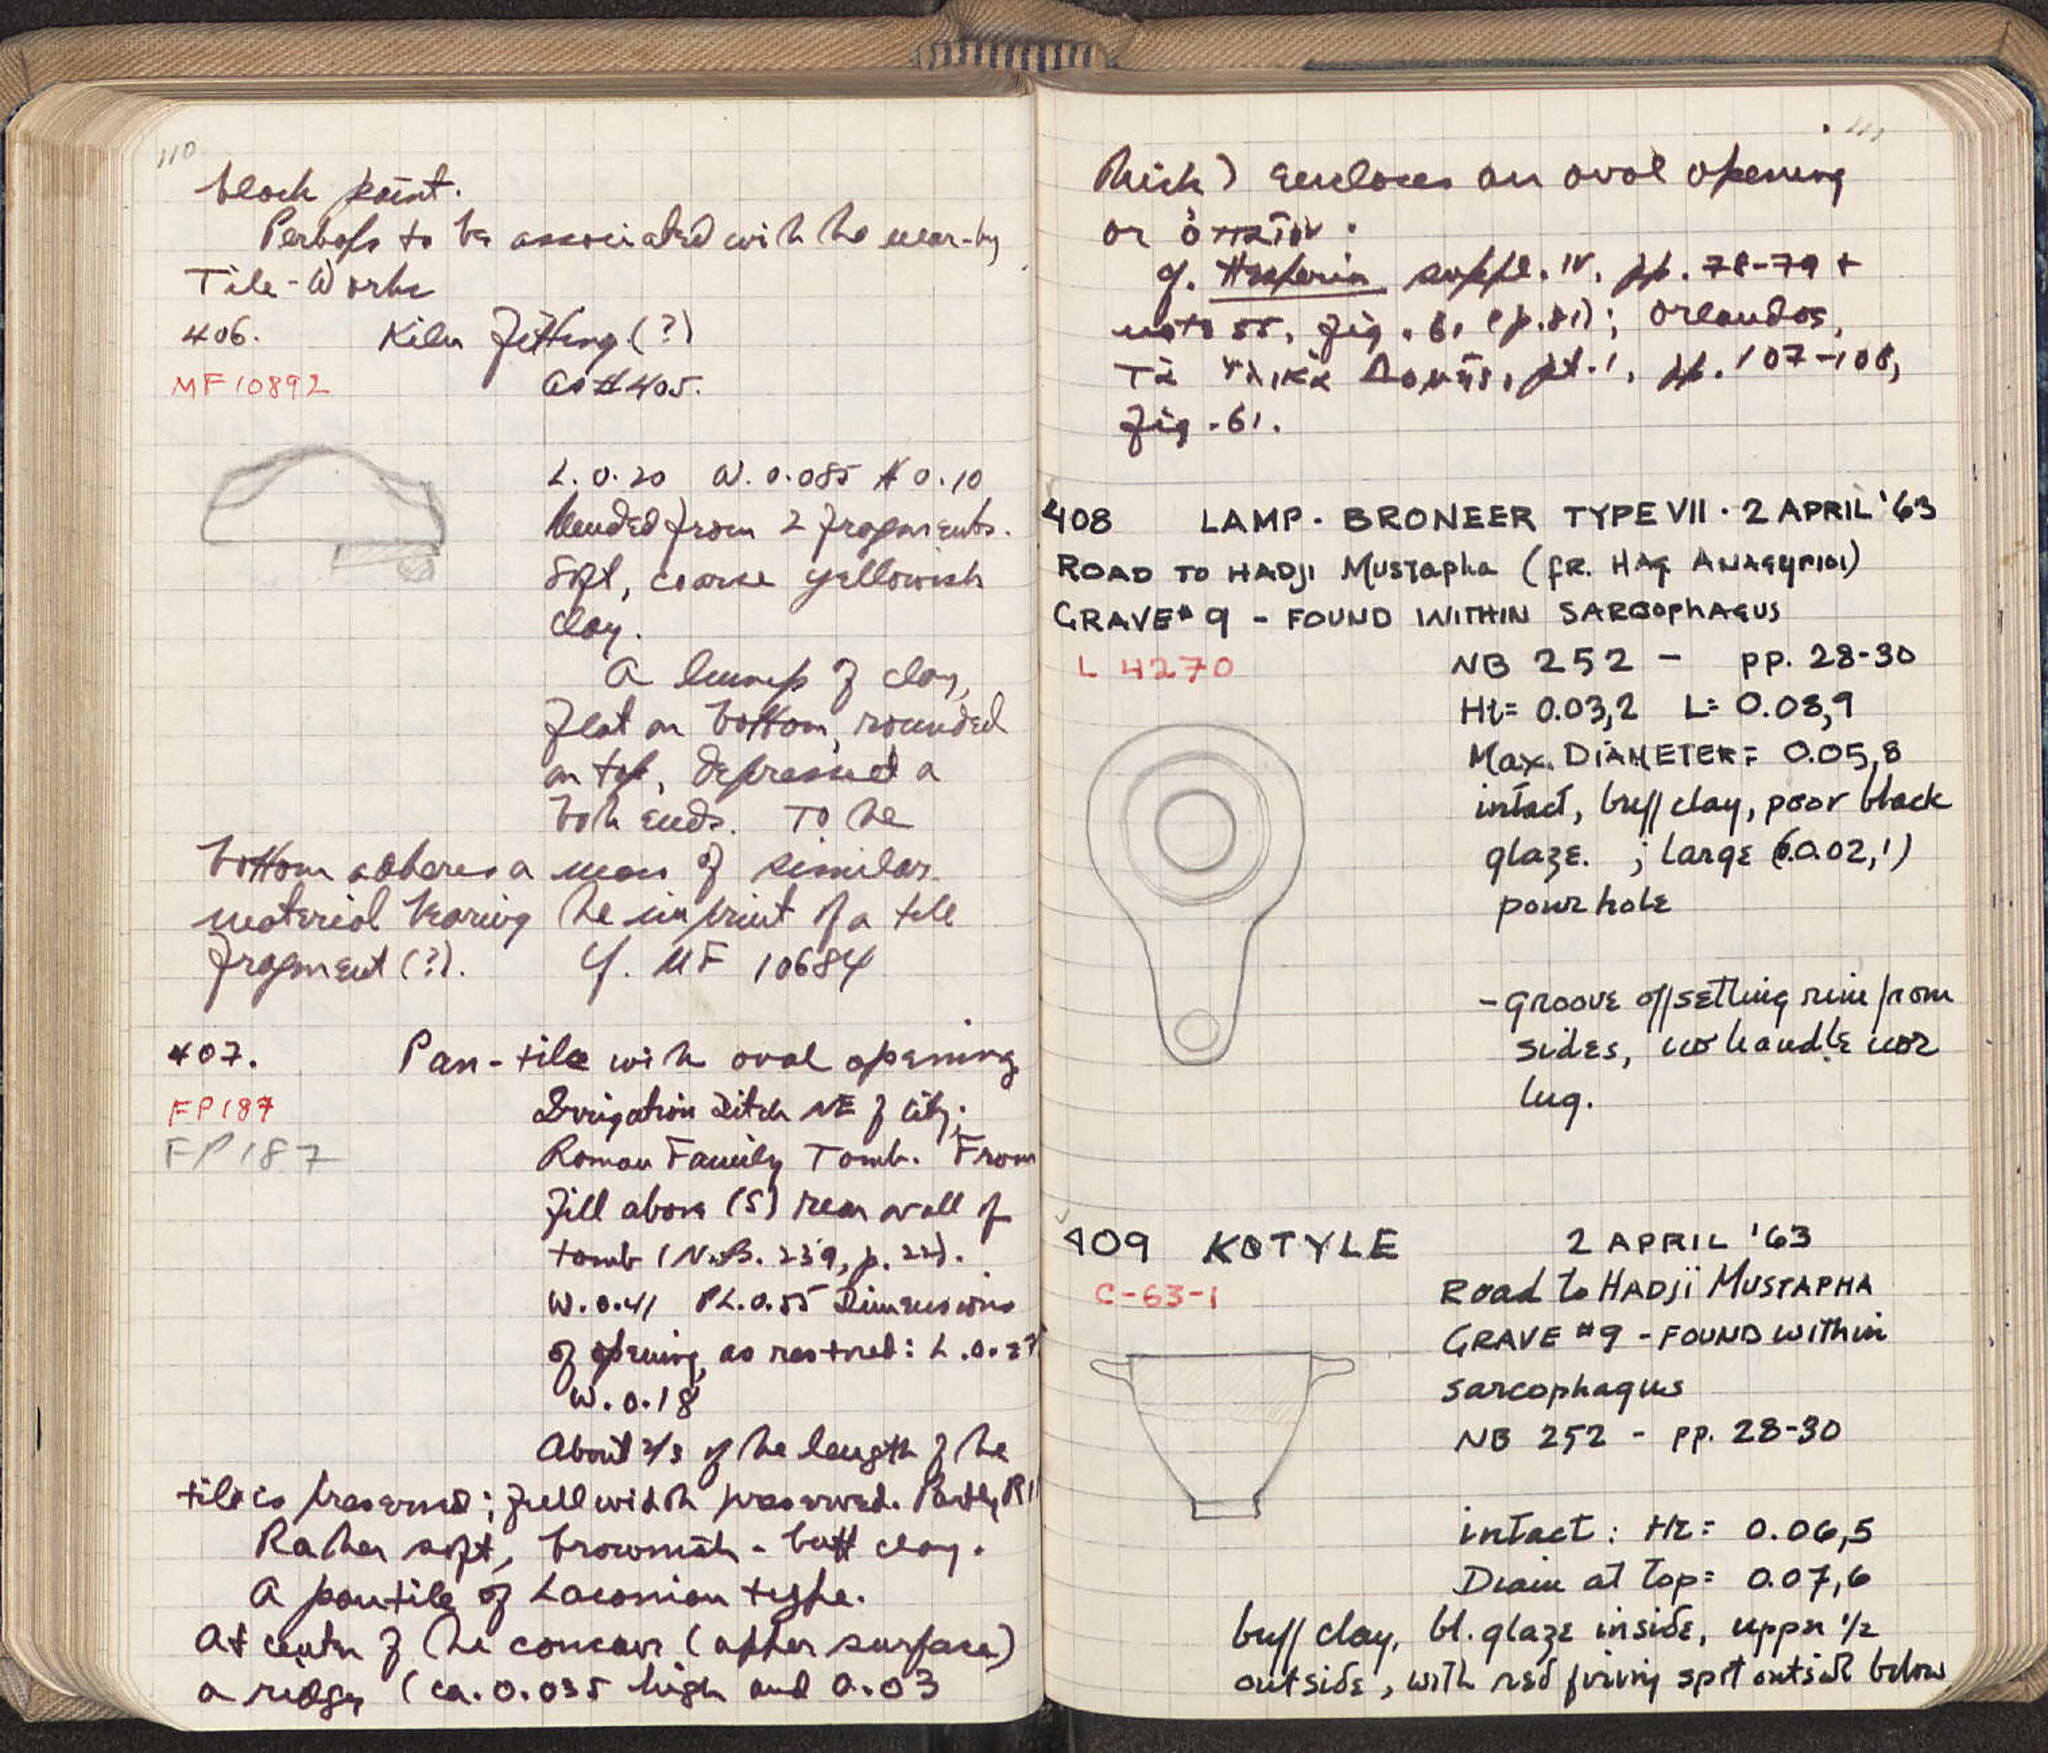 110
black paint.
Perhaps to be associated with the near-by
Tile-Works
406. Kiln fitting (?)
MF 10892 As #405.
L. 0.20 W. 0.085 H 0.10
Mended from 2 fragments.
Soft, coarse yellowish
clay.
A lump of clay,
flat on bottom, rounded
on top, depressed a
both ends. To the
bottom adheres a mass of similar
material bearing the imprint of a tile
fragment (?). Cf. MF 10684
407. Pan-tile with oval opening
FP 187 Irrigation Ditch NE of City;
FP 187 Roman Family Tomb. From
fill above (S) rear wall of
tomb (N.B. 239, p. 22).
W. 0.41 P.L. 0.55 Dimensions
of opening, as restored: L. 0.27
W. 0.18
About 2/3 of the length of the
tile is preserved; full width preserved. Partly
Rather soft, brownish-buff clay.
A pantile of Laconian type.
At center of the concave (upper surface)
a ridge (ca. 0.035 high and 0.03
111
thick) encloses an oval opening
or ὀπαῖον.
cf. Hesperia suppl. IV. pp. 78-79 +
note 55, fig. 61 (p. 81); Orlandos,
Τὰ Ὑλικὰ Δομῆς, pt. 1, pp. 107-108,
fig. 61.
408 LAMP. BRONEER TYPE VII. 2 APRIL '63
ROAD TO HADJI MUSTAPHA (FR. HAG ANAGYRIOI)
GRAVE #9 - FOUND WITHIN SARCOPHAGUS
L 4270 NB 252 - pp. 28-30
Ht= 0.03,2 L= 0.08,9
Max. DIAMETER= 0.05,8
intact, buff clay, poor black
glaze. ; large (0.02,1)
pour hole
- groove offsetting rim from
sides, no handle nor
lug.
409 KOTYLE 2 APRIL '63
C-63-1 Road to HADJI MUSTAPHA
GRAVE #9 - FOUND within
sarcophagus
NB 252 - pp. 28-30
intact: Ht= 0.06,5
Diam at top= 0.07,6
buff clay, bl. glaze inside, upper 1/2
outside, with red firing spot outside below